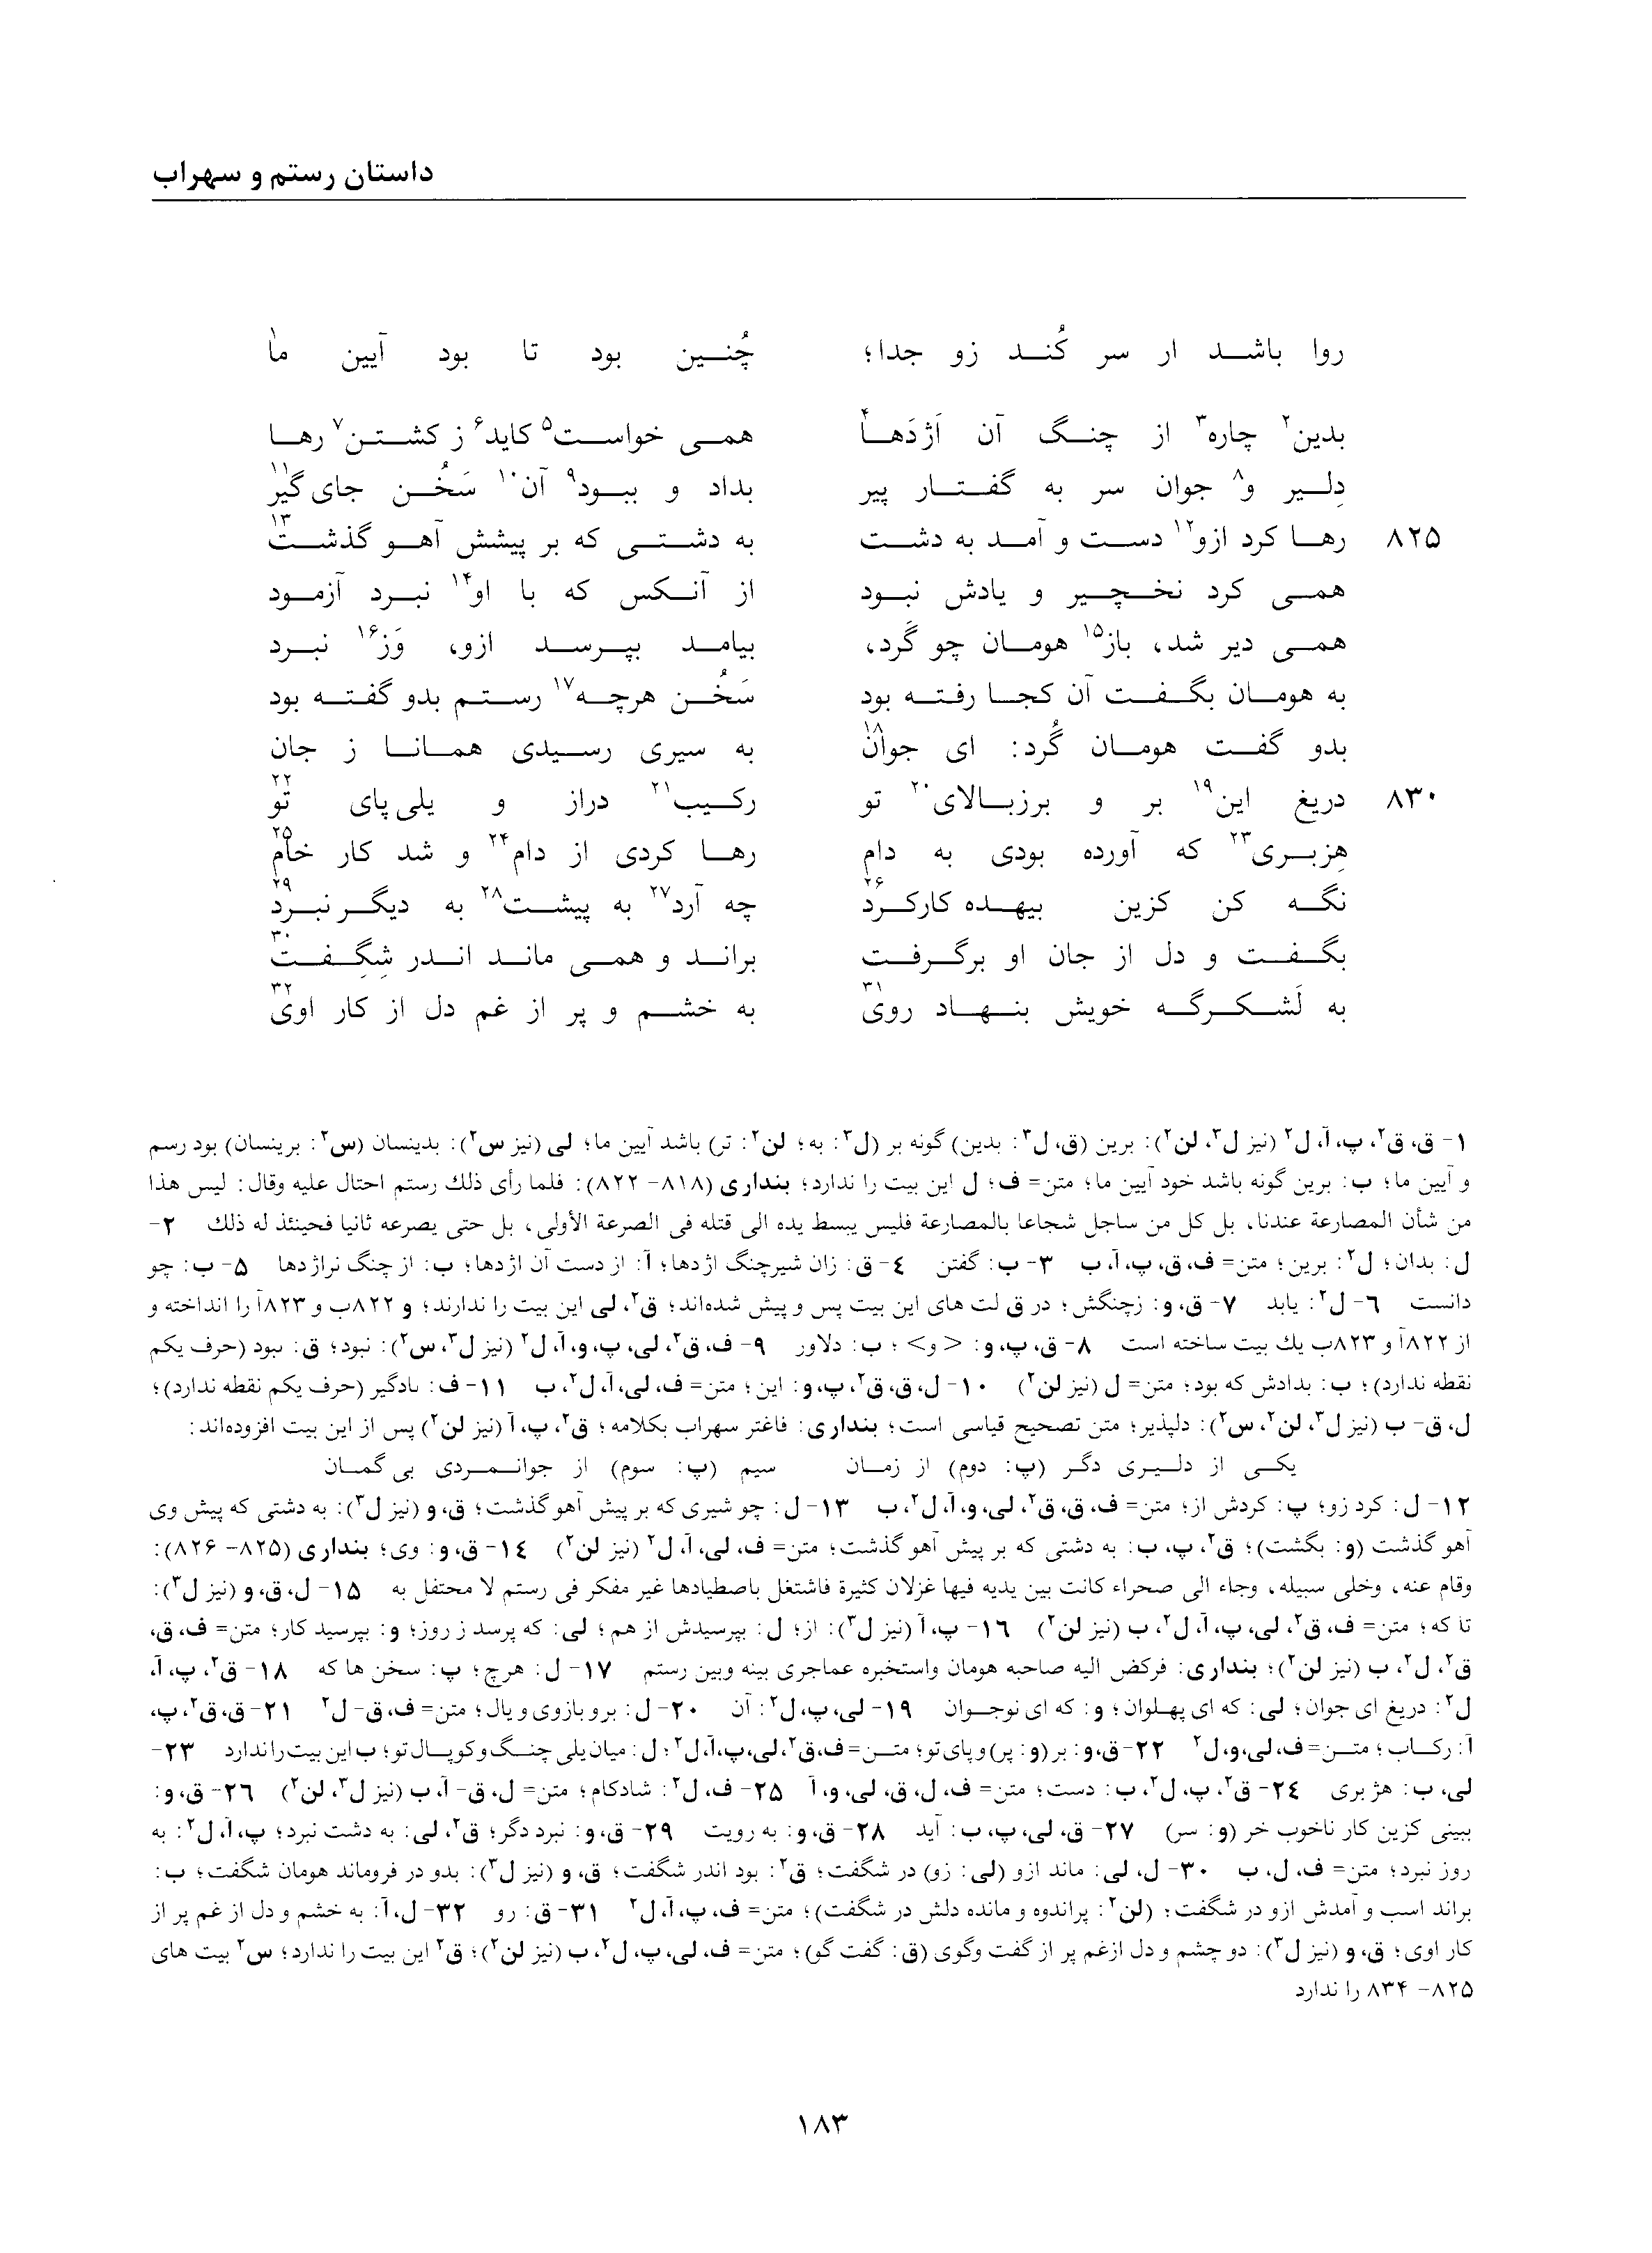 داستان رستم و سهراب
روا باشد ار سر کُند زو جدا؛ چُنین بود تا بود آیین ما۱
بدین۲ چاره۳ از چنگ آن اژدَها۴ همی خواست۵ کاید۶ ز کشتن۷ رها
دِلیر و۸ جوان سر به گفتار پیر بداد و ببود۹ آن۱۰ سَخُن جای‌گیر۱۱
۸۲۵ رها کرد ازو۱۲ دست و آمد به دشت به دشتی که بر پیشش آهو گذشت۱۳
همی کرد نخچیر و یادش نبود از آنکس که با او۱۴ نبرد آزمود
همی دیر شد، باز۱۵ هومان چو گَرد، بیامد بپرسد ازو، وَز۱۶ نبرد
به هومان بگفت آن کجا رفته بود سَخُن هرچه۱۷ رستم بدو گفته بود
بدو گفت هومان گُرد: ای جوان۱۸ به سیری رسیدی همانا ز جان
۸۳۰ دریغ این۱۹ بر و برزبالای۲۰ تو رکیب۲۱ دراز و یلی‌پای تو۲۲
هِزبری۲۳ که آورده بودی به دام رها کردی از دام۲۴ و شد کار خام۲۵
نگه کن کزین بیهده کارکرد۲۶ چه آرد۲۷ به پیشت۲۸ به دیگر نبرد۲۹
بگفت و دل از جان او برگرفت براند و همی ماند اندر شِگِفت۳۰
به لَشکرگه خویش بنهاد روی۳۱ به خشم و پر از غم دل از کار اوی۳۲
۱- ق، ق۲، پ، آ، ل۲ (نیز ل۳، لن۲): برین (ق، ل۳: بدین) گونه بر (ل۳: به؛ لن۲: تر) باشد آیین ما؛ لی (نیز س۲): بدینسان (س۲: برینسان) بود رسم
و آیین ما؛ ب: برین گونه باشد خود آیین ما؛ متن= ف؛ ل این بیت را ندارد؛ بنداری (۸۱۸- ۸۲۲): فلما رأی ذلك رستم احتال علیه وقال: لیس هذا
من شأن المصارعة عندنا، بل کل من ساجل شجاعا بالمصارعة فلیس یبسط یده الی قتله فی الصرعة الأولی، بل حتی یصرعه ثانیا فحینئذ له ذلك ۲-
ل: بدان؛ ل۲: برین؛ متن= ف، ق، پ، آ، ب ۳- ب: گفتن ٤- ق: زان شیرچنگ اژدها؛ آ: از دست آن اژدها؛ ب: از چنگ نراژدها ۵- ب: چو
دانست ٦- ل۲: یابد ۷- ق، و: زچنگش؛ در ق لت های این بیت پس و پیش شده‌اند؛ ق۲، لی این بیت را ندارند؛ و ۸۲۲ب و ۸۲۳آ را انداخته و
از ۸۲۲آ و ۸۲۳ب یك بیت ساخته است ۸- ق، پ، و: < و> ؛ ب: دلاور ۹- ف، ق۲، لی، پ، و، آ، ل۲ (نیز ل۳، س۲): نبود؛ ق: ببود (حرف یکم
نقطه ندارد)؛ ب: بدادش که بود؛ متن= ل (نیز لن۲) ۱۰- ل، ق، ق۲، پ، و: این؛ متن= ف، لی، آ، ل۲، ب ۱۱- ف: بادگیر (حرف یکم نقطه ندارد)؛
ل، ق- ب (نیز ل۳، لن۲، س۲): دلپذیر؛ متن تصحیح قیاسی است؛ بنداری: فاغتر سهراب بکلامه؛ ق۲، پ، آ (نیز لن۲) پس از این بیت افزوده‌اند:
یکی از دلیری دگر (پ: دوم) از زمان سیم (پ: سوم) از جوانمردی بی گمان
۱۲- ل: کرد زو؛ پ: کردش از؛ متن= ف، ق، ق۲، لی، و، آ، ل۲، ب ۱۳- ل: چو شیری که بر پیش آهو گذشت؛ ق، و (نیز ل۳): به دشتی که پیش وی
آهو گذشت (و: بگشت)؛ ق۲، پ، ب: به دشتی که بر پیش آهو گذشت؛ متن= ف، لی، آ، ل۲ (نیز لن۲) ۱٤- ق، و: وی؛ بنداری (۸۲۵- ۸۲۶):
وقام عنه، وخلی سبیله، وجاء الی صحراء کانت بین یدیه فیها غزلان کثیرة فاشتغل باصطیادها غیر مفکر فی رستم لا محتفل به ۱۵- ل، ق، و (نیز ل۳):
تا که؛ متن= ف، ق۲، لی، پ، آ، ل۲، ب (نیز لن۲) ۱٦- پ، آ (نیز ل۳): از؛ ل: بپرسیدش از هم؛ لی: که پرسد ز روز؛ و: بپرسید کار؛ متن= ف، ق،
ق۲، ل۲، ب (نیز لن۲)؛ بنداری: فرکض الیه صاحبه هومان واستخبره عماجری بینه وبین رستم ۱۷- ل: هرچ؛ پ: سخن ها که ۱۸- ق۲، پ، آ،
ل۲: دریغ ای جوان؛ لی: که ای پهلوان؛ و: که ای نوجوان ۱۹- لی، پ، ل۲: آن ۲۰- ل: برو بازوی و یال؛ متن= ف، ق- ل۲ ۲۱- ق، ق۲، پ،
آ: رکاب؛ متن= ف، لی، و، ل۲ ۲۲- ق، و: بر (و: پر) و پای تو؛ متن= ف، ق۲، لی، پ، آ، ل۲؛ ل: میان یلی چنگ و کوپال تو؛ ب این بیت را ندارد ۲۳-
لی، ب: هژبری ۲٤- ق۲، پ، ل۲، ب: دست؛ متن= ف، ل، ق، لی، و، آ ۲۵- ف، ل۲: شادکام؛ متن= ل، ق- آ، ب (نیز ل۳، لن۲) ۲٦- ق، و:
ببینی کزین کار ناخوب خر (و: سر) ۲۷- ق، لی، پ، ب: آید ۲۸- ق، و: به رویت ۲۹- ق، و: نبرد دگر؛ ق۲، لی: به دشت نبرد؛ پ، آ، ل۲: به
روز نبرد؛ متن= ف، ل، ب ۳۰- ل، لی: ماند ازو (لی: زو) در شگفت؛ ق۲: بود اندر شگفت؛ ق، و (نیز ل۳): بدو در فروماند هومان شگفت؛ ب:
براند اسب و آمدش ازو در شگفت؛ (لن۲: پراندوه و مانده دلش در شگفت)؛ متن= ف، پ، آ، ل۲ ۳۱- ق: رو ۳۲- ل، آ: به خشم و دل از غم پر از
کار اوی؛ ق، و (نیز ل۳): دو چشم و دل ازغم پر از گفت وگوی (ق: گفت گو)؛ متن= ف، لی، پ، ل۲، ب (نیز لن۲)؛ ق۲ این بیت را ندارد؛ س۲ بیت های
۸۲۵- ۸۳۴ را ندارد
۱۸۳